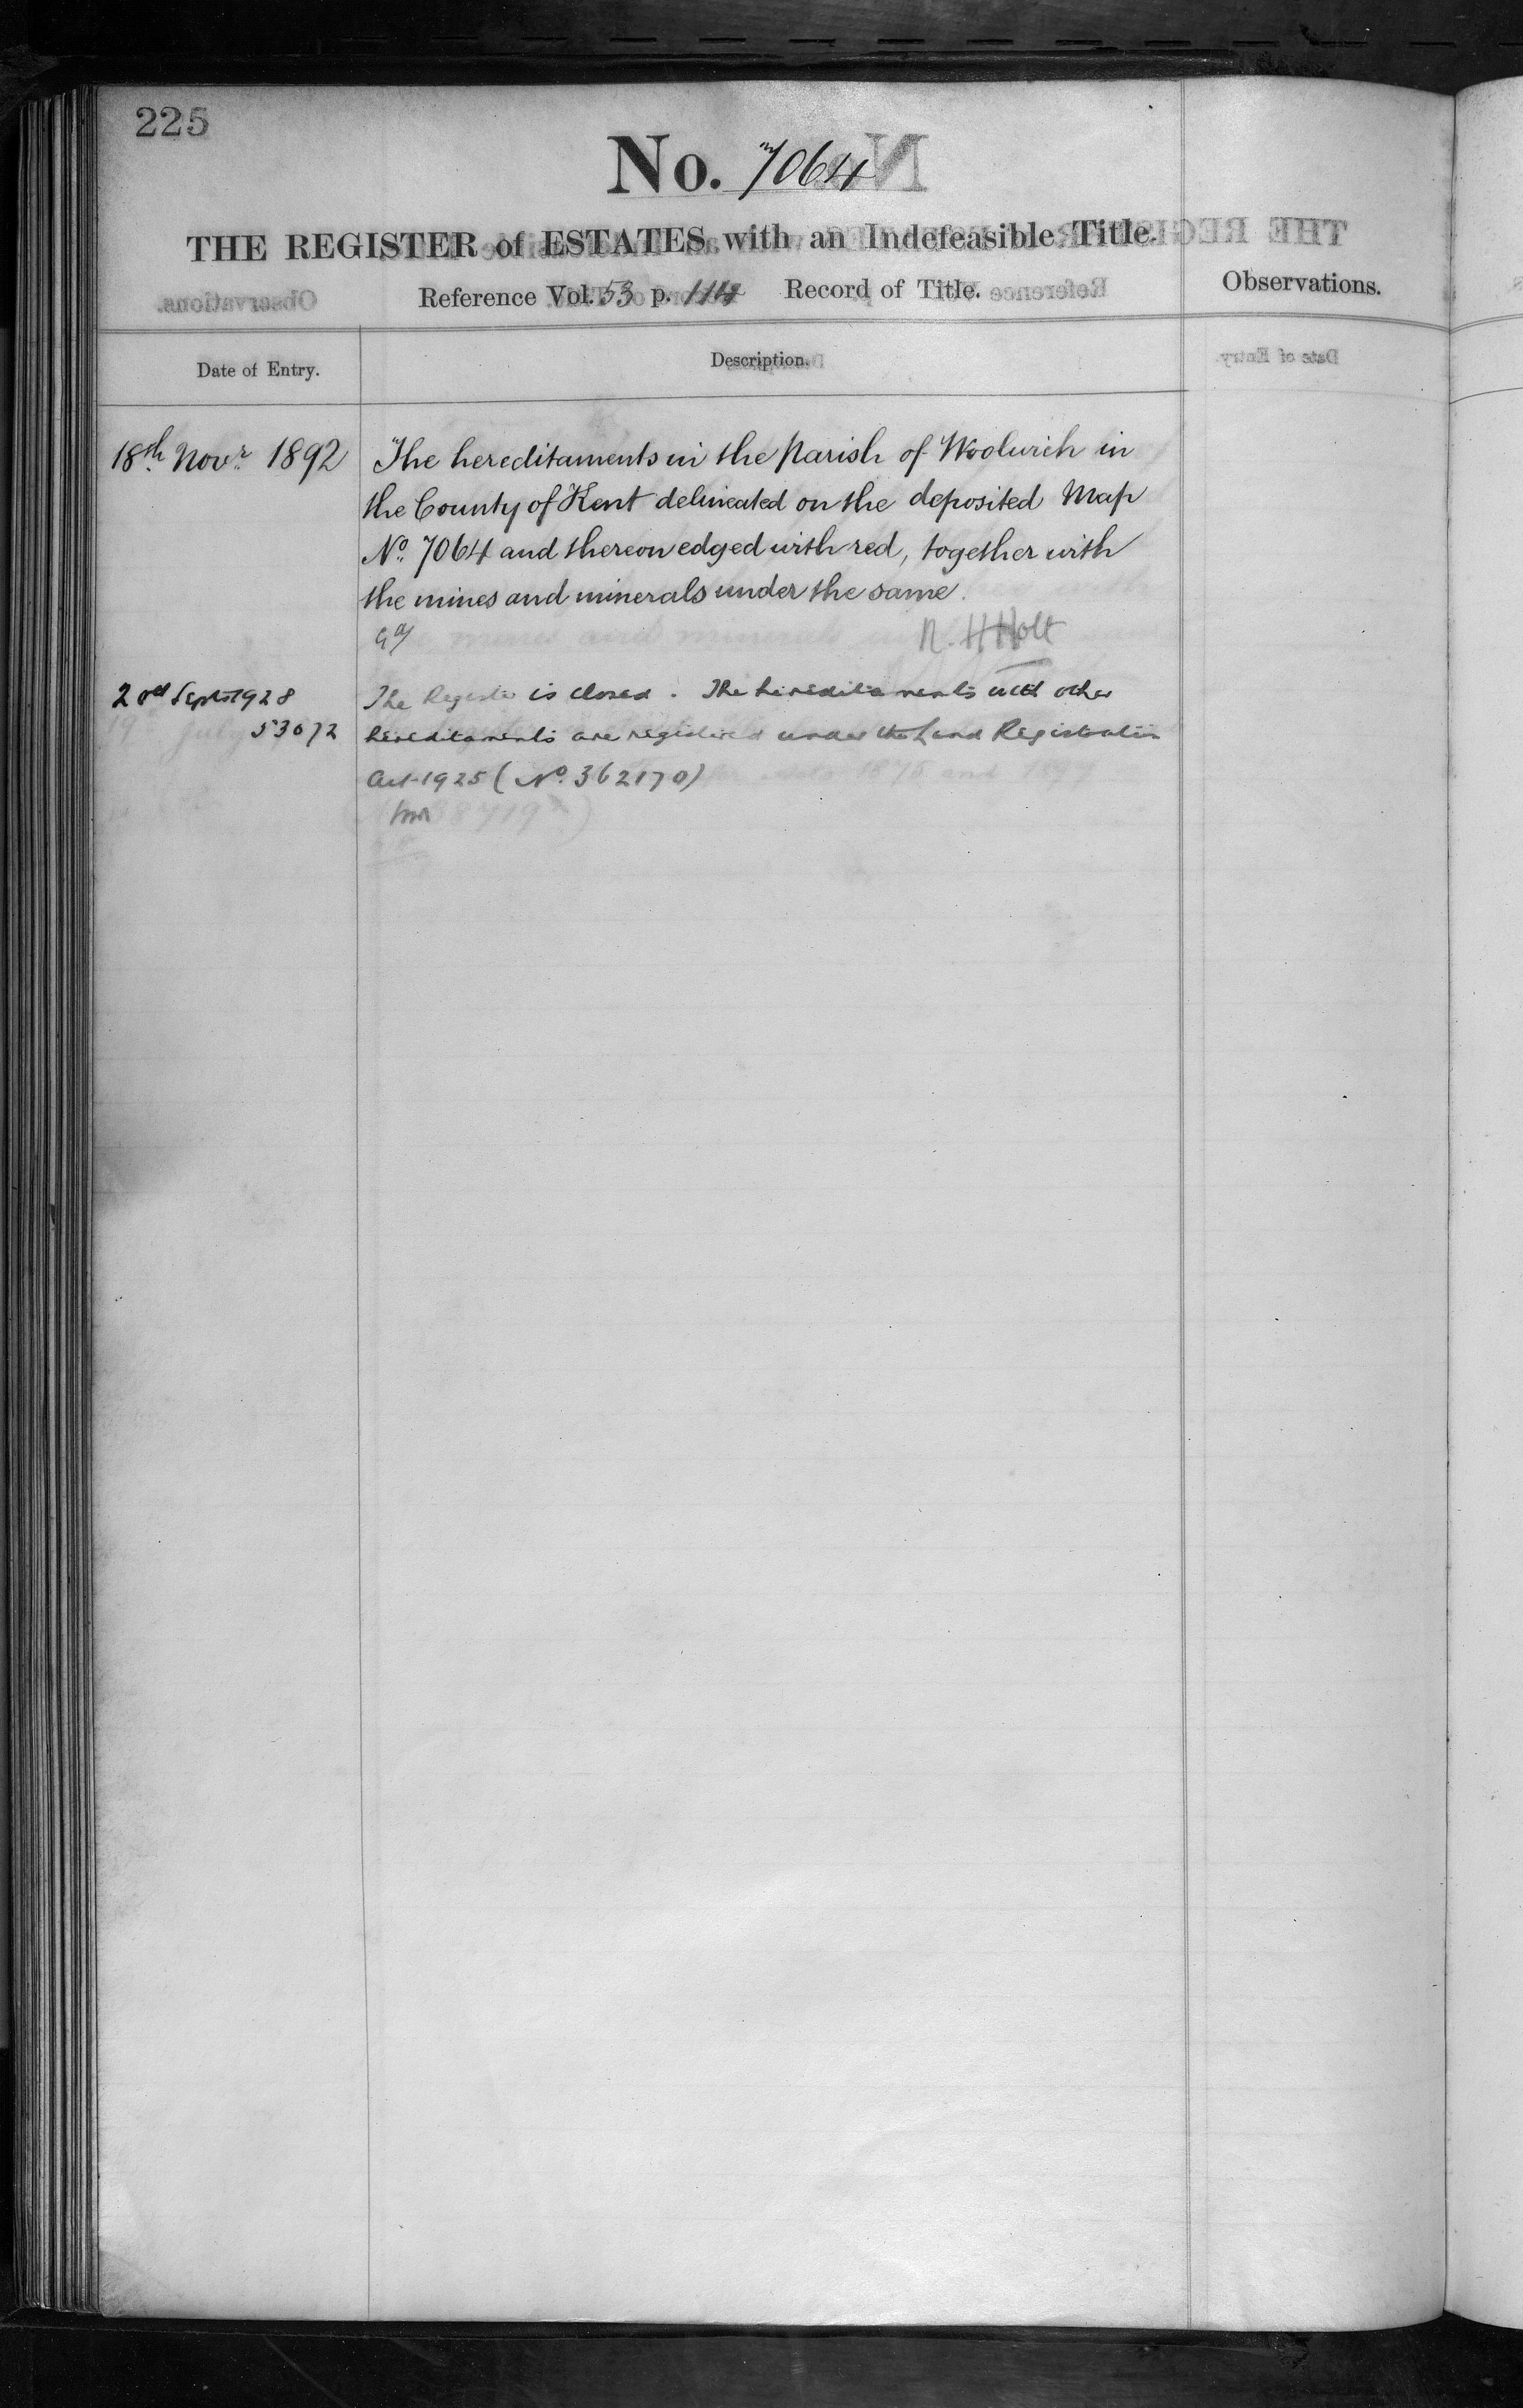 225
No. 7064
THE REGISTER of ESTATES with an Indefeasible Title.
Reference Vol. 53 p. 114 Record of Title.
Observations.
Date of Entry.
Description.
18th Novr 1892
The hereditaments in the Parish of Woolwich in
the County of Kent delineated on the deposited Map
No. 7064 and thereon edged with red, together with
the mines and minerals under the same.
R. H Holt
Sept 1928
53672
The Register is closed. The hereditaments with other
hereditaments are registered under the Land Registration
Act 1925 (No. 362170)